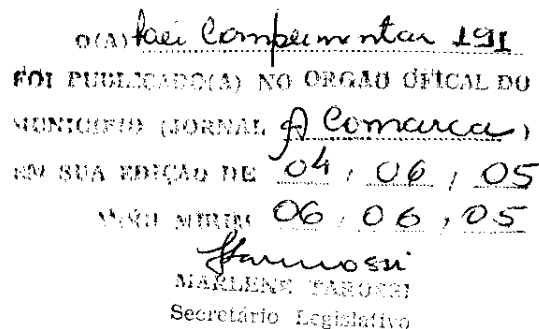 O(A) Lei Complementar 191
FOI PUBLICADO(A) NO ORGAO OFICAL DO
MUNICIPIO (JORNAL A Comarca)
EM SUA EDIÇÃO DE 04 / 06 / 05
MOGI MIRIM 06 / 06 / 05
MARLENE TAROSSI
Secretário Legislativo